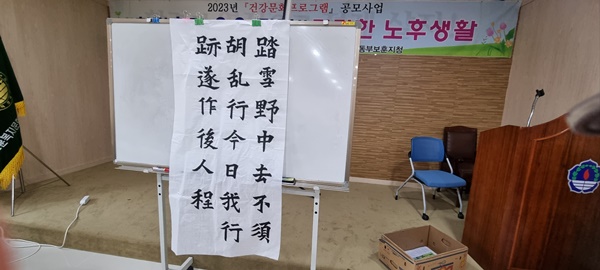 2023년「건강문화프로그램」 공모사업
한 노후생활
동부보훈지청
踏雪野中去不須
胡乱行今日我行
跡遂作後人程